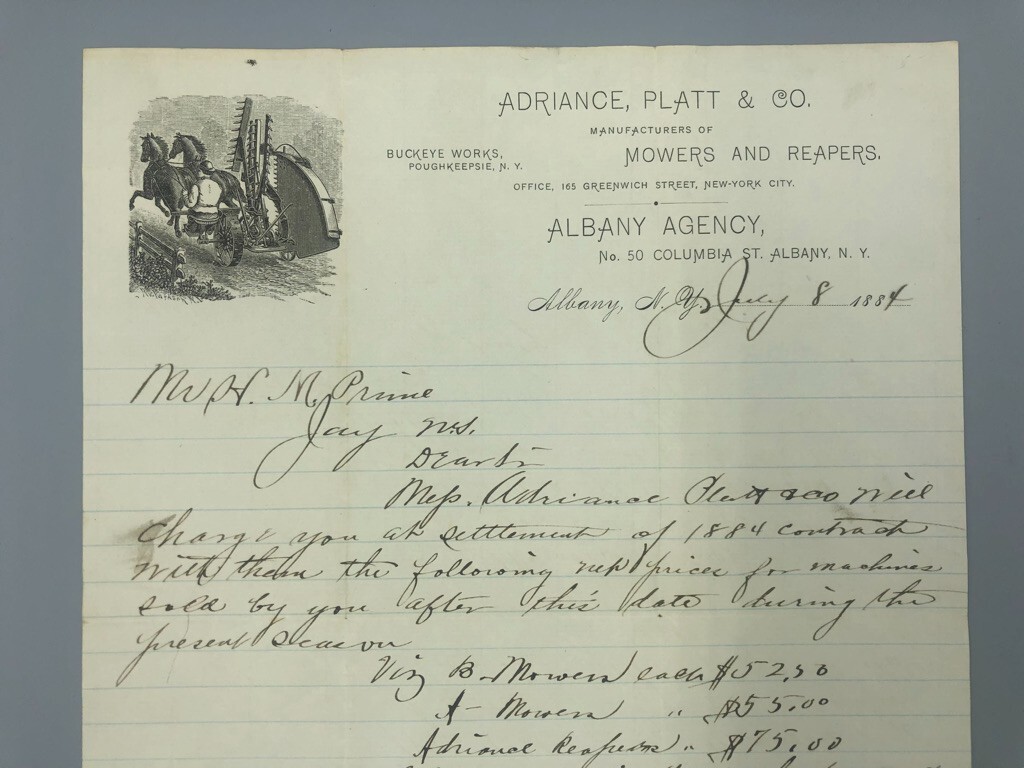 ADRIANCE, PLATT & CO.
MANUFACTURERS OF
BUCKEYE WORKS,
POUGHKEEPSIE, N. Y.
MOWERS AND REAPERS.
OFFICE, 165 GREENWICH STREET, NEW-YORK CITY.
ALBANY AGENCY,
No. 50 COLUMBIA ST. ALBANY, N. Y.
Albany, N. Y., July 8 1884
Mr H. M. Prime
Jay N.Y.
Dear Sir
Mess. Adriance Platt & Co will
charge you at settlement of 1884 contract
with them the following net prices for machines
sold by you after this date during the
present season
Viz B. Mowers each $52.50
A - Mowers " $55.00
Adriance Reapers " $75.00